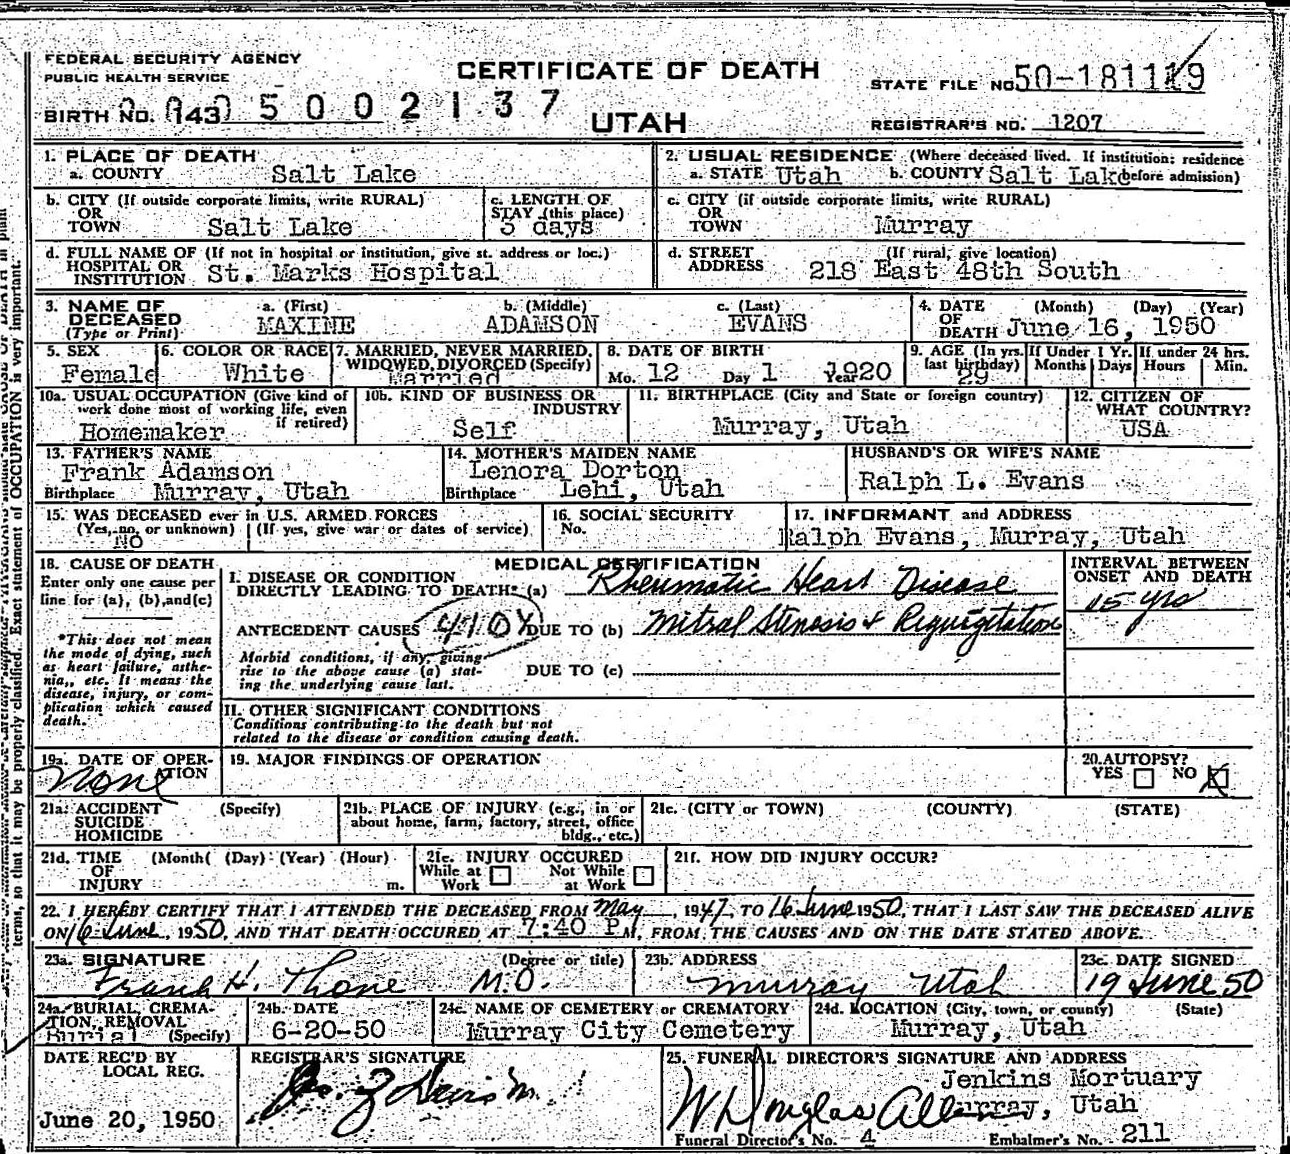 FEDERAL SECURITY AGENCY
PUBLIC HEALTH SERVICE
CERTIFICATE OF DEATH
STATE FILE NO. 50-181119
BIRTH NO. 143 05002137
UTAH
REGISTRAR'S NO. 1207
1. PLACE OF DEATH
a. COUNTY Salt Lake
2. USUAL RESIDENCE (Where deceased lived. If institution: residence before admission)
a. STATE Utah b. COUNTY Salt Lake
b. CITY (If outside corporate limits, write RURAL)
OR
TOWN Salt Lake
c. LENGTH OF
STAY (this place)
days
c. CITY (if outside corporate limits, write RURAL)
OR
TOWN Murray
d. FULL NAME OF (If not in hospital or institution, give st. address or loc.)
HOSPITAL OR
INSTITUTION St. Marks Hospital
d. STREET (If rural, give location)
ADDRESS 218 East 48th South
3. NAME OF
DECEASED
(Type or Print)
a. (First) b. (Middle) c. (Last)
MAXINE ADAMSON EVANS
4. DATE (Month) (Day) (Year)
OF
DEATH June 16, 1950
5. SEX
Female
6. COLOR OR RACE
White
7. MARRIED, NEVER MARRIED,
WIDOWED, DIVORCED (Specify)
Married
8. DATE OF BIRTH
Mo. 12 Day 1 Year 1920
9. AGE (In yrs.
last birthday)
29
If Under 1 Yr.
Months Days
If under 24 hrs.
Hours Min.
10a. USUAL OCCUPATION (Give kind of
work done most of working life, even
if retired)
Homemaker
10b. KIND OF BUSINESS OR
INDUSTRY
Self
11. BIRTHPLACE (City and State or foreign country)
Murray, Utah
12. CITIZEN OF
WHAT COUNTRY?
USA
13. FATHER'S NAME
Frank Adamson
Birthplace Murray, Utah
14. MOTHER'S MAIDEN NAME
Lenora Dorton
Birthplace Lehi, Utah
HUSBAND'S OR WIFE'S NAME
Ralph L. Evans
15. WAS DECEASED ever in U.S. ARMED FORCES
(Yes, no, or unknown) (If yes, give war or dates of service)
No
16. SOCIAL SECURITY
No.
17. INFORMANT and ADDRESS
Ralph Evans, Murray, Utah
18. CAUSE OF DEATH
Enter only one cause per
line for (a), (b), and (c)
*This does not mean
the mode of dying, such
as heart failure, asthe-
nia, etc. It means the
disease, injury, or com-
plication which caused
death.
MEDICAL CERTIFICATION
I. DISEASE OR CONDITION
DIRECTLY LEADING TO DEATH* (a) Rheumatic Heart Disease
ANTECEDENT CAUSES 410X DUE TO (b) Mitral Stenosis & Regurgitation
Morbid conditions, if any, giving
rise to the above cause (a) stat-
ing the underlying cause last.
DUE TO (c)
II. OTHER SIGNIFICANT CONDITIONS
Conditions contributing to the death but not
related to the disease or condition causing death.
INTERVAL BETWEEN
ONSET AND DEATH
15 yrs
19a. DATE OF OPER-
ATION
None
19. MAJOR FINDINGS OF OPERATION
20. AUTOPSY?
YES NO X
21a. ACCIDENT (Specify)
SUICIDE
HOMICIDE
21b. PLACE OF INJURY (e.g., in or
about home, farm, factory, street, office
bldg., etc.)
21c. (CITY or TOWN) (COUNTY) (STATE)
21d. TIME (Month( (Day) (Year) (Hour)
OF
INJURY m.
21e. INJURY OCCURED
While at Work Not While at Work
21f. HOW DID INJURY OCCUR?
22. I HEREBY CERTIFY THAT I ATTENDED THE DECEASED FROM May, 1947, TO 16 June 1950, THAT I LAST SAW THE DECEASED ALIVE
ON 16 June, 1950, AND THAT DEATH OCCURED AT 7:40 P M, FROM THE CAUSES AND ON THE DATE STATED ABOVE.
23a. SIGNATURE (Degree or title)
Frank H. Thone M.D.
23b. ADDRESS
Murray Utah
23c. DATE SIGNED
19 June 50
24a. BURIAL, CREMA-
TION, REMOVAL
Burial (Specify)
24b. DATE
6-20-50
24c. NAME OF CEMETERY or CREMATORY
Murray City Cemetery
24d. LOCATION (City, town, or county) (State)
Murray, Utah
DATE REC'D BY
LOCAL REG.
June 20, 1950
REGISTRAR'S SIGNATURE
25. FUNERAL DIRECTOR'S SIGNATURE AND ADDRESS
Jenkins Mortuary
W Douglas Allen Murray, Utah
Funeral Director's No. 4 Embalmer's No. 211
terms, so that it may be properly classified. Exact statement of OCCUPATION is very important.